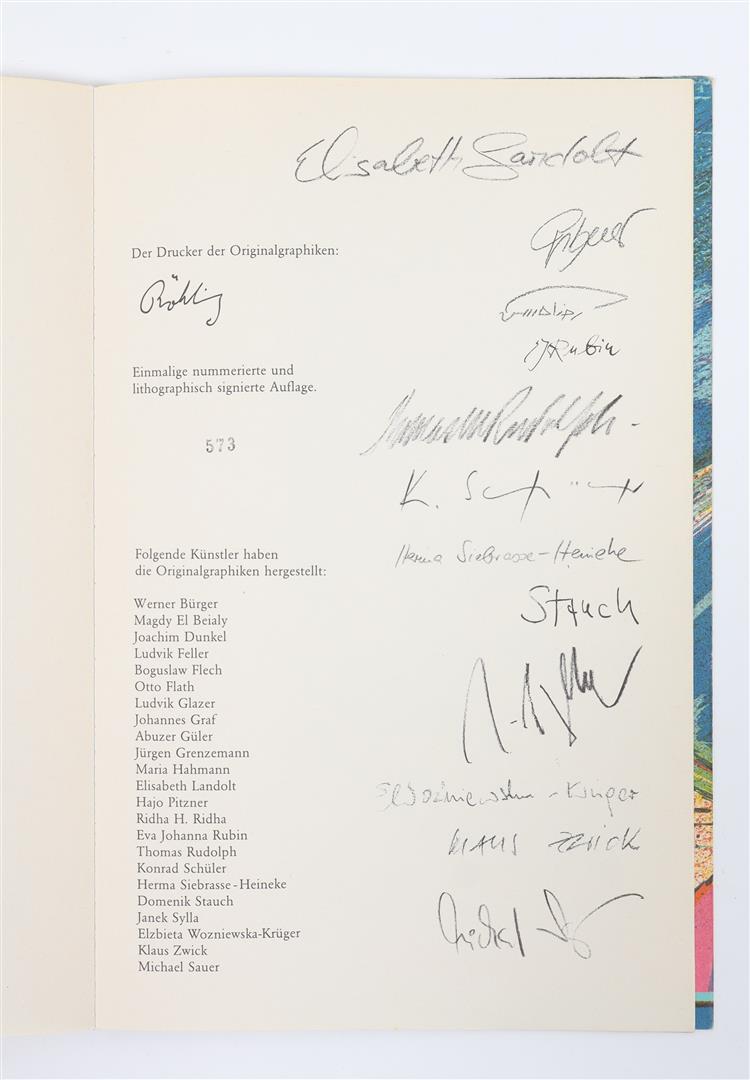 Elisabeth Landolt
Der Drucker der Originalgraphiken:
Röhling
EJRubin
Einmalige nummerierte und
lithographisch signierte Auflage.
Thomas Rudolph
573
K. Schüler
Folgende Künstler haben
die Originalgraphiken hergestellt:
Herma Siebrasse-Heineke
Stauch
Werner Bürger
Magdy El Beialy
Joachim Dunkel
Ludvik Feller
Boguslaw Flech
Otto Flath
Ludvik Glazer
Johannes Graf
Abuzer Güler
Jürgen Grenzemann
Maria Hahmann
Elisabeth Landolt
Hajo Pitzner
Ridha H. Ridha
Eva Johanna Rubin
Thomas Rudolph
Konrad Schüler
Herma Siebrasse-Heineke
Domenik Stauch
Janek Sylla
Elzbieta Wozniewska-Krüger
Klaus Zwick
Michael Sauer
E Wozniewska-Krüger
KLAUS ZWICK
Michael